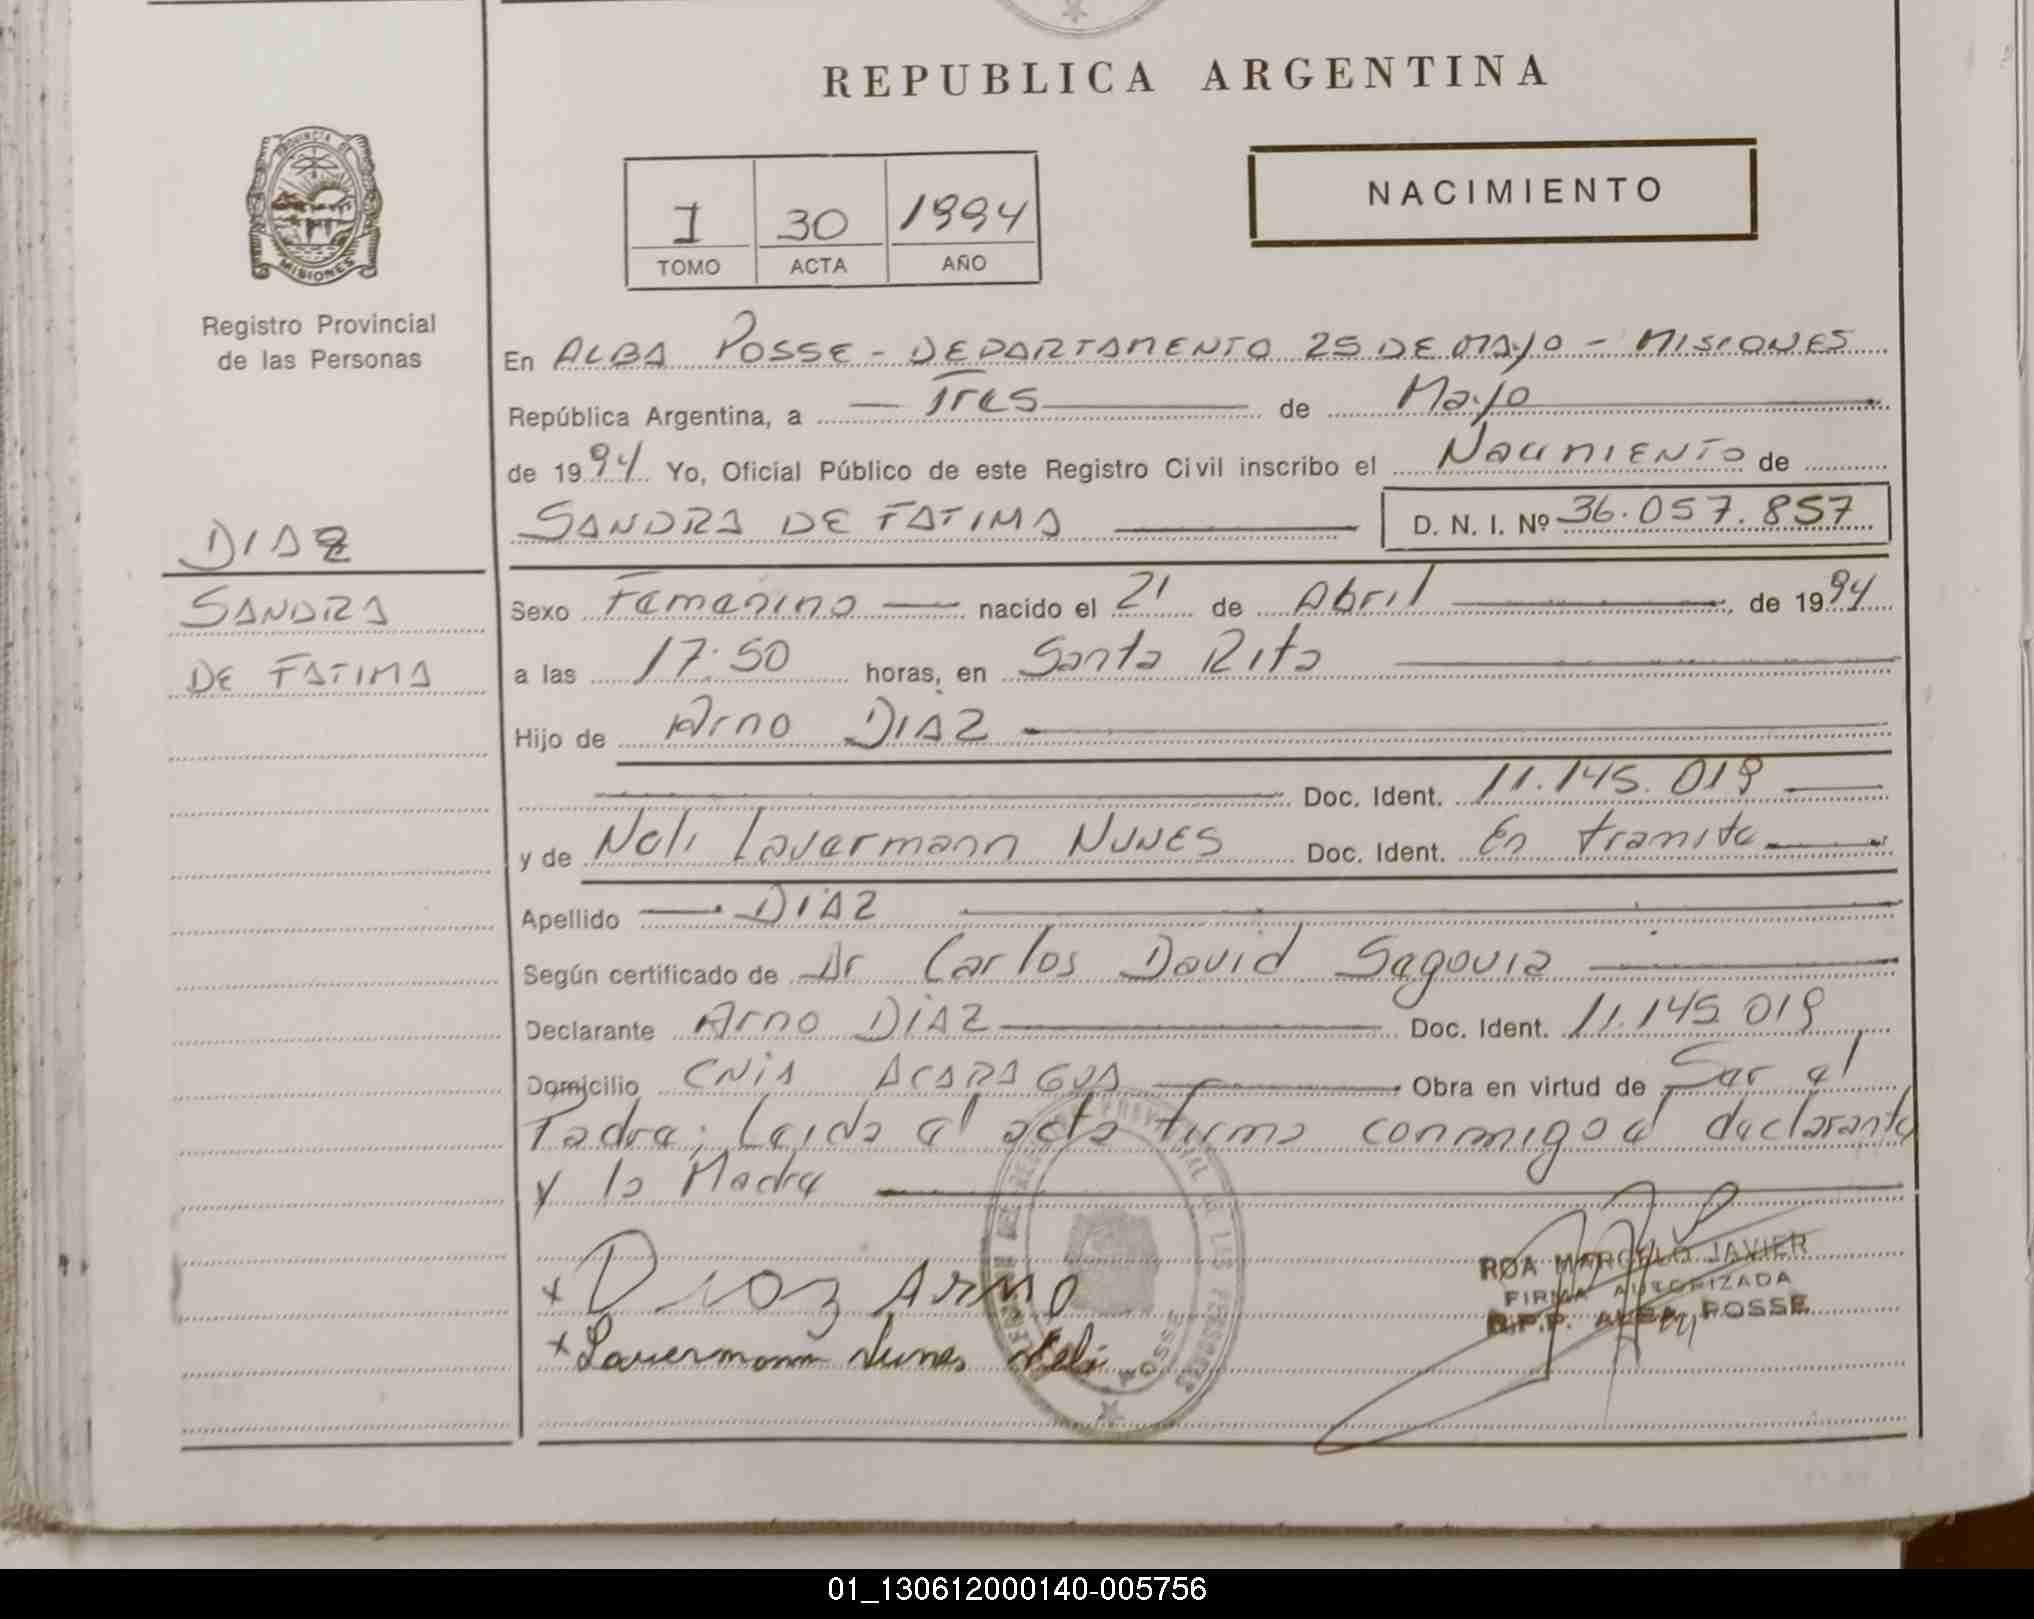 REPUBLICA ARGENTINA
PROVINCIA DE
MISIONES
Registro Provincial
de las Personas
1 30 1994
TOMO ACTA AÑO
NACIMIENTO
En ALBA POSSE - DEPARTAMENTO 25 DE MAYO - MISIONES
República Argentina, a Tres de Mayo
de 1994 Yo, Oficial Público de este Registro Civil inscribo el NACIMIENTO de
SANDRA DE FATIMA D. N. I. Nº 36.057.857
DIAZ
SANDRA
DE FATIMA
Sexo Femenino nacido el 21 de Abril de 1994
a las 17:50 horas, en Santa Rita
Hijo de Arno DIAZ
Doc. Ident. 11.145.019
y de Neli Lavermann NUNES Doc. Ident. En tramite
Apellido DIAZ
Según certificado de Dr Carlos David Segovia
Declarante Arno DIAZ Doc. Ident. 11.145.019
Domicilio CNIA ACARAGUA Obra en virtud de Ser el
Padre; Leida el acta firma conmigo el declarante
y la Madre
x Diaz Arno
x Lavermann Nunes Neli
POSSE
ROA MARCELO JAVIER
FIRMA AUTORIZADA
R.P.P. ALBA POSSE
01_130612000140-005756